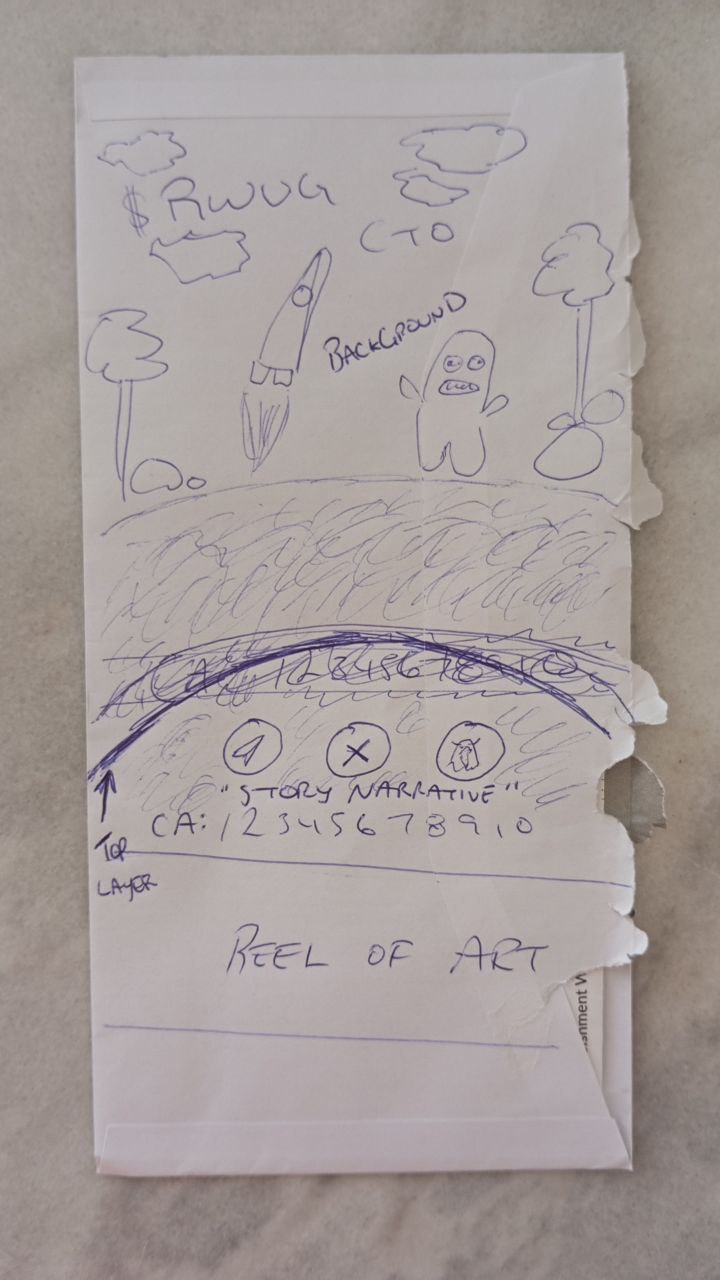 $RWUG
CTO
BACKGROUND
CA: 12345678910
X
"STORY NARRATIVE"
CA: 12345678910
TOP
LAYER
REEL OF ART